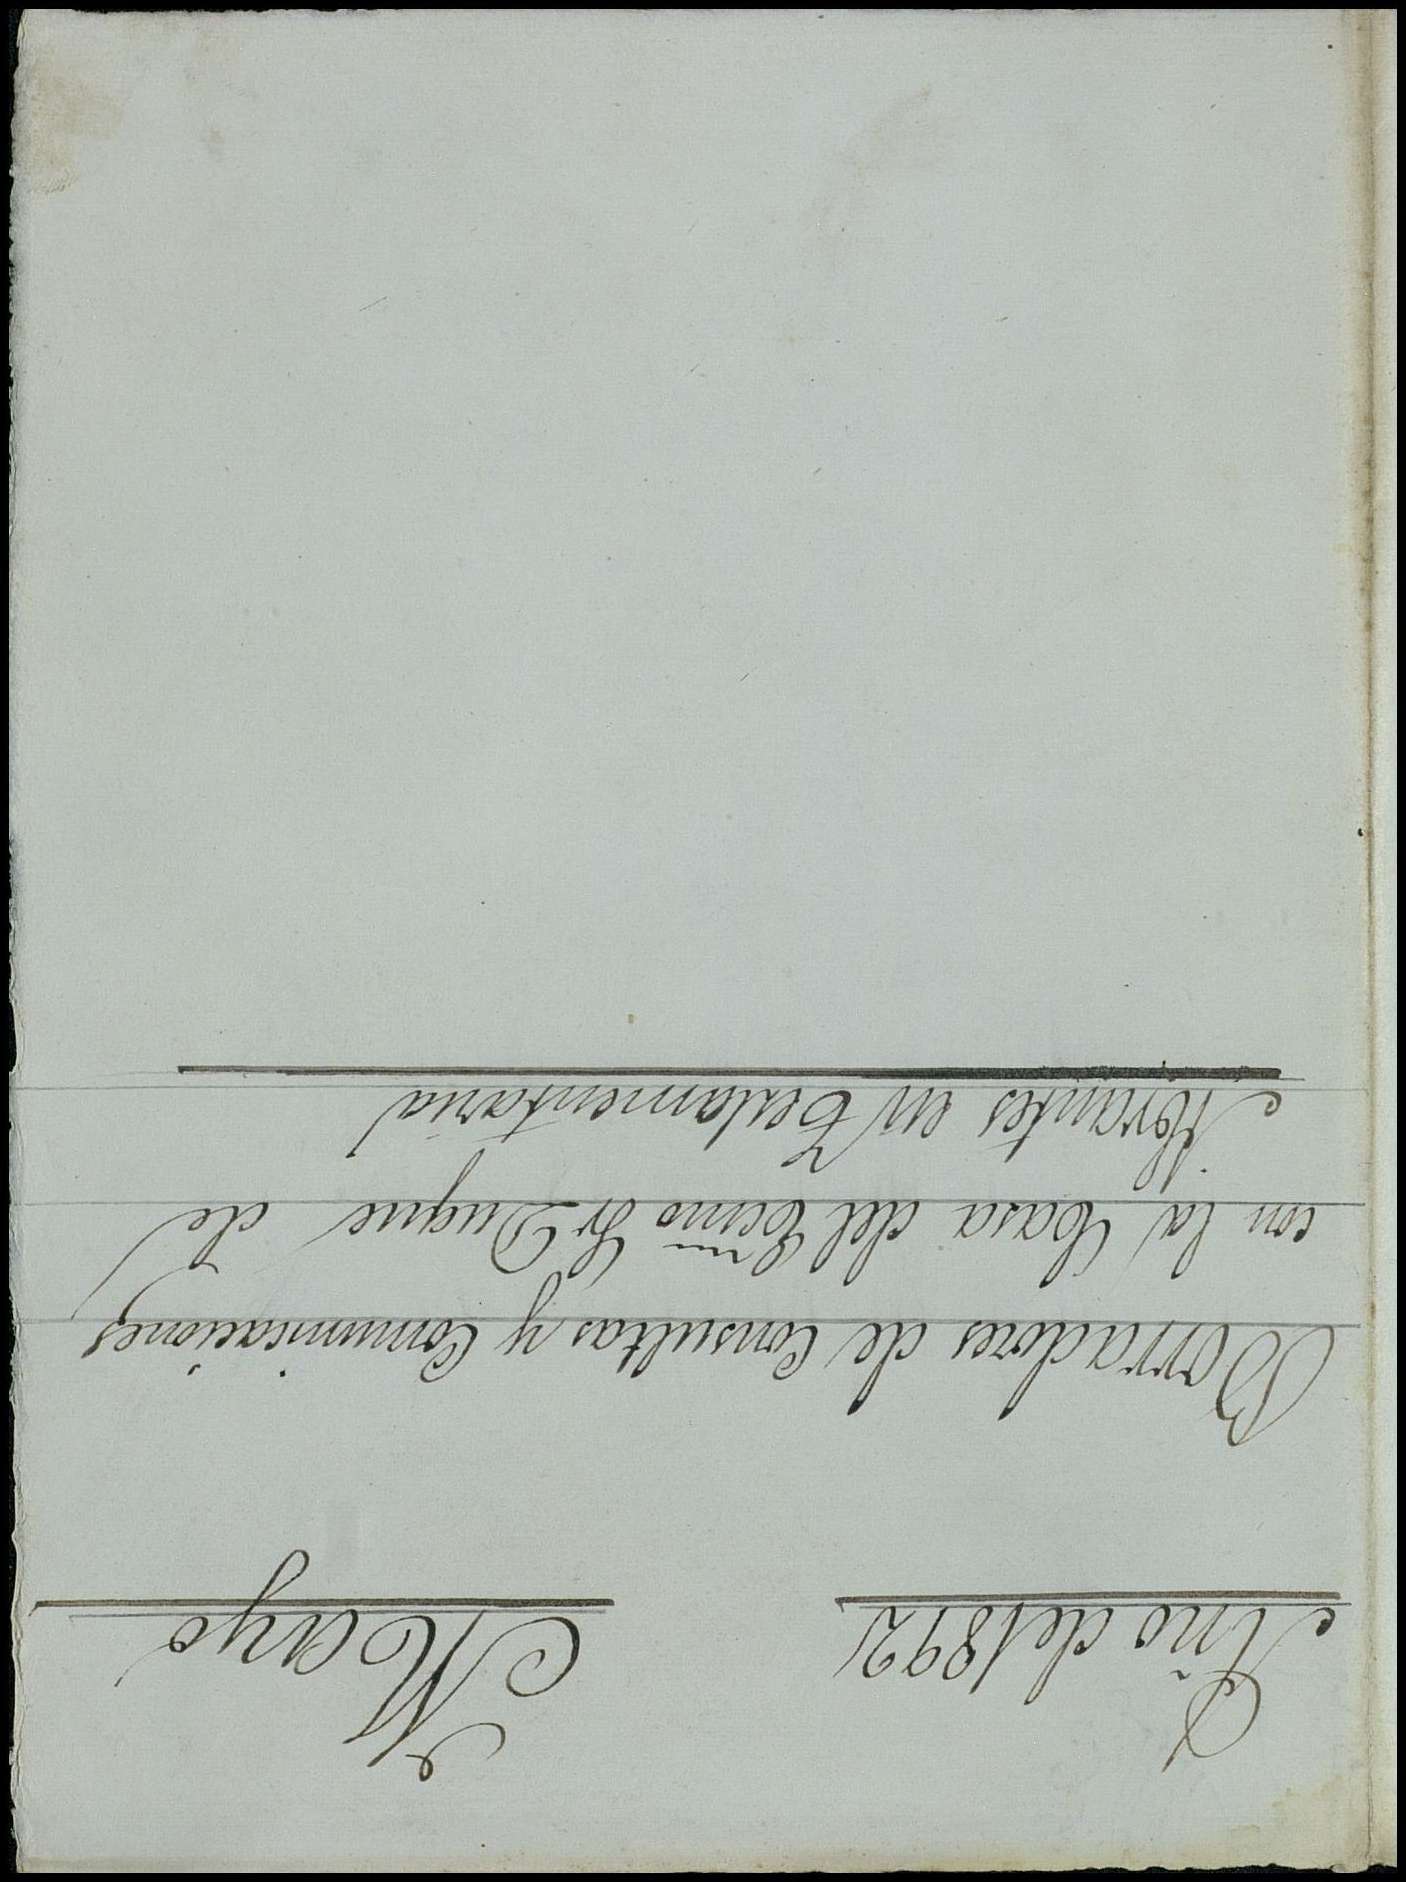 Año de 1892 Mayo
Borradores de Consultas y Comunicaciones
con la Casa del Ecmo Sr Duque de
Abrantes en Testamentaria